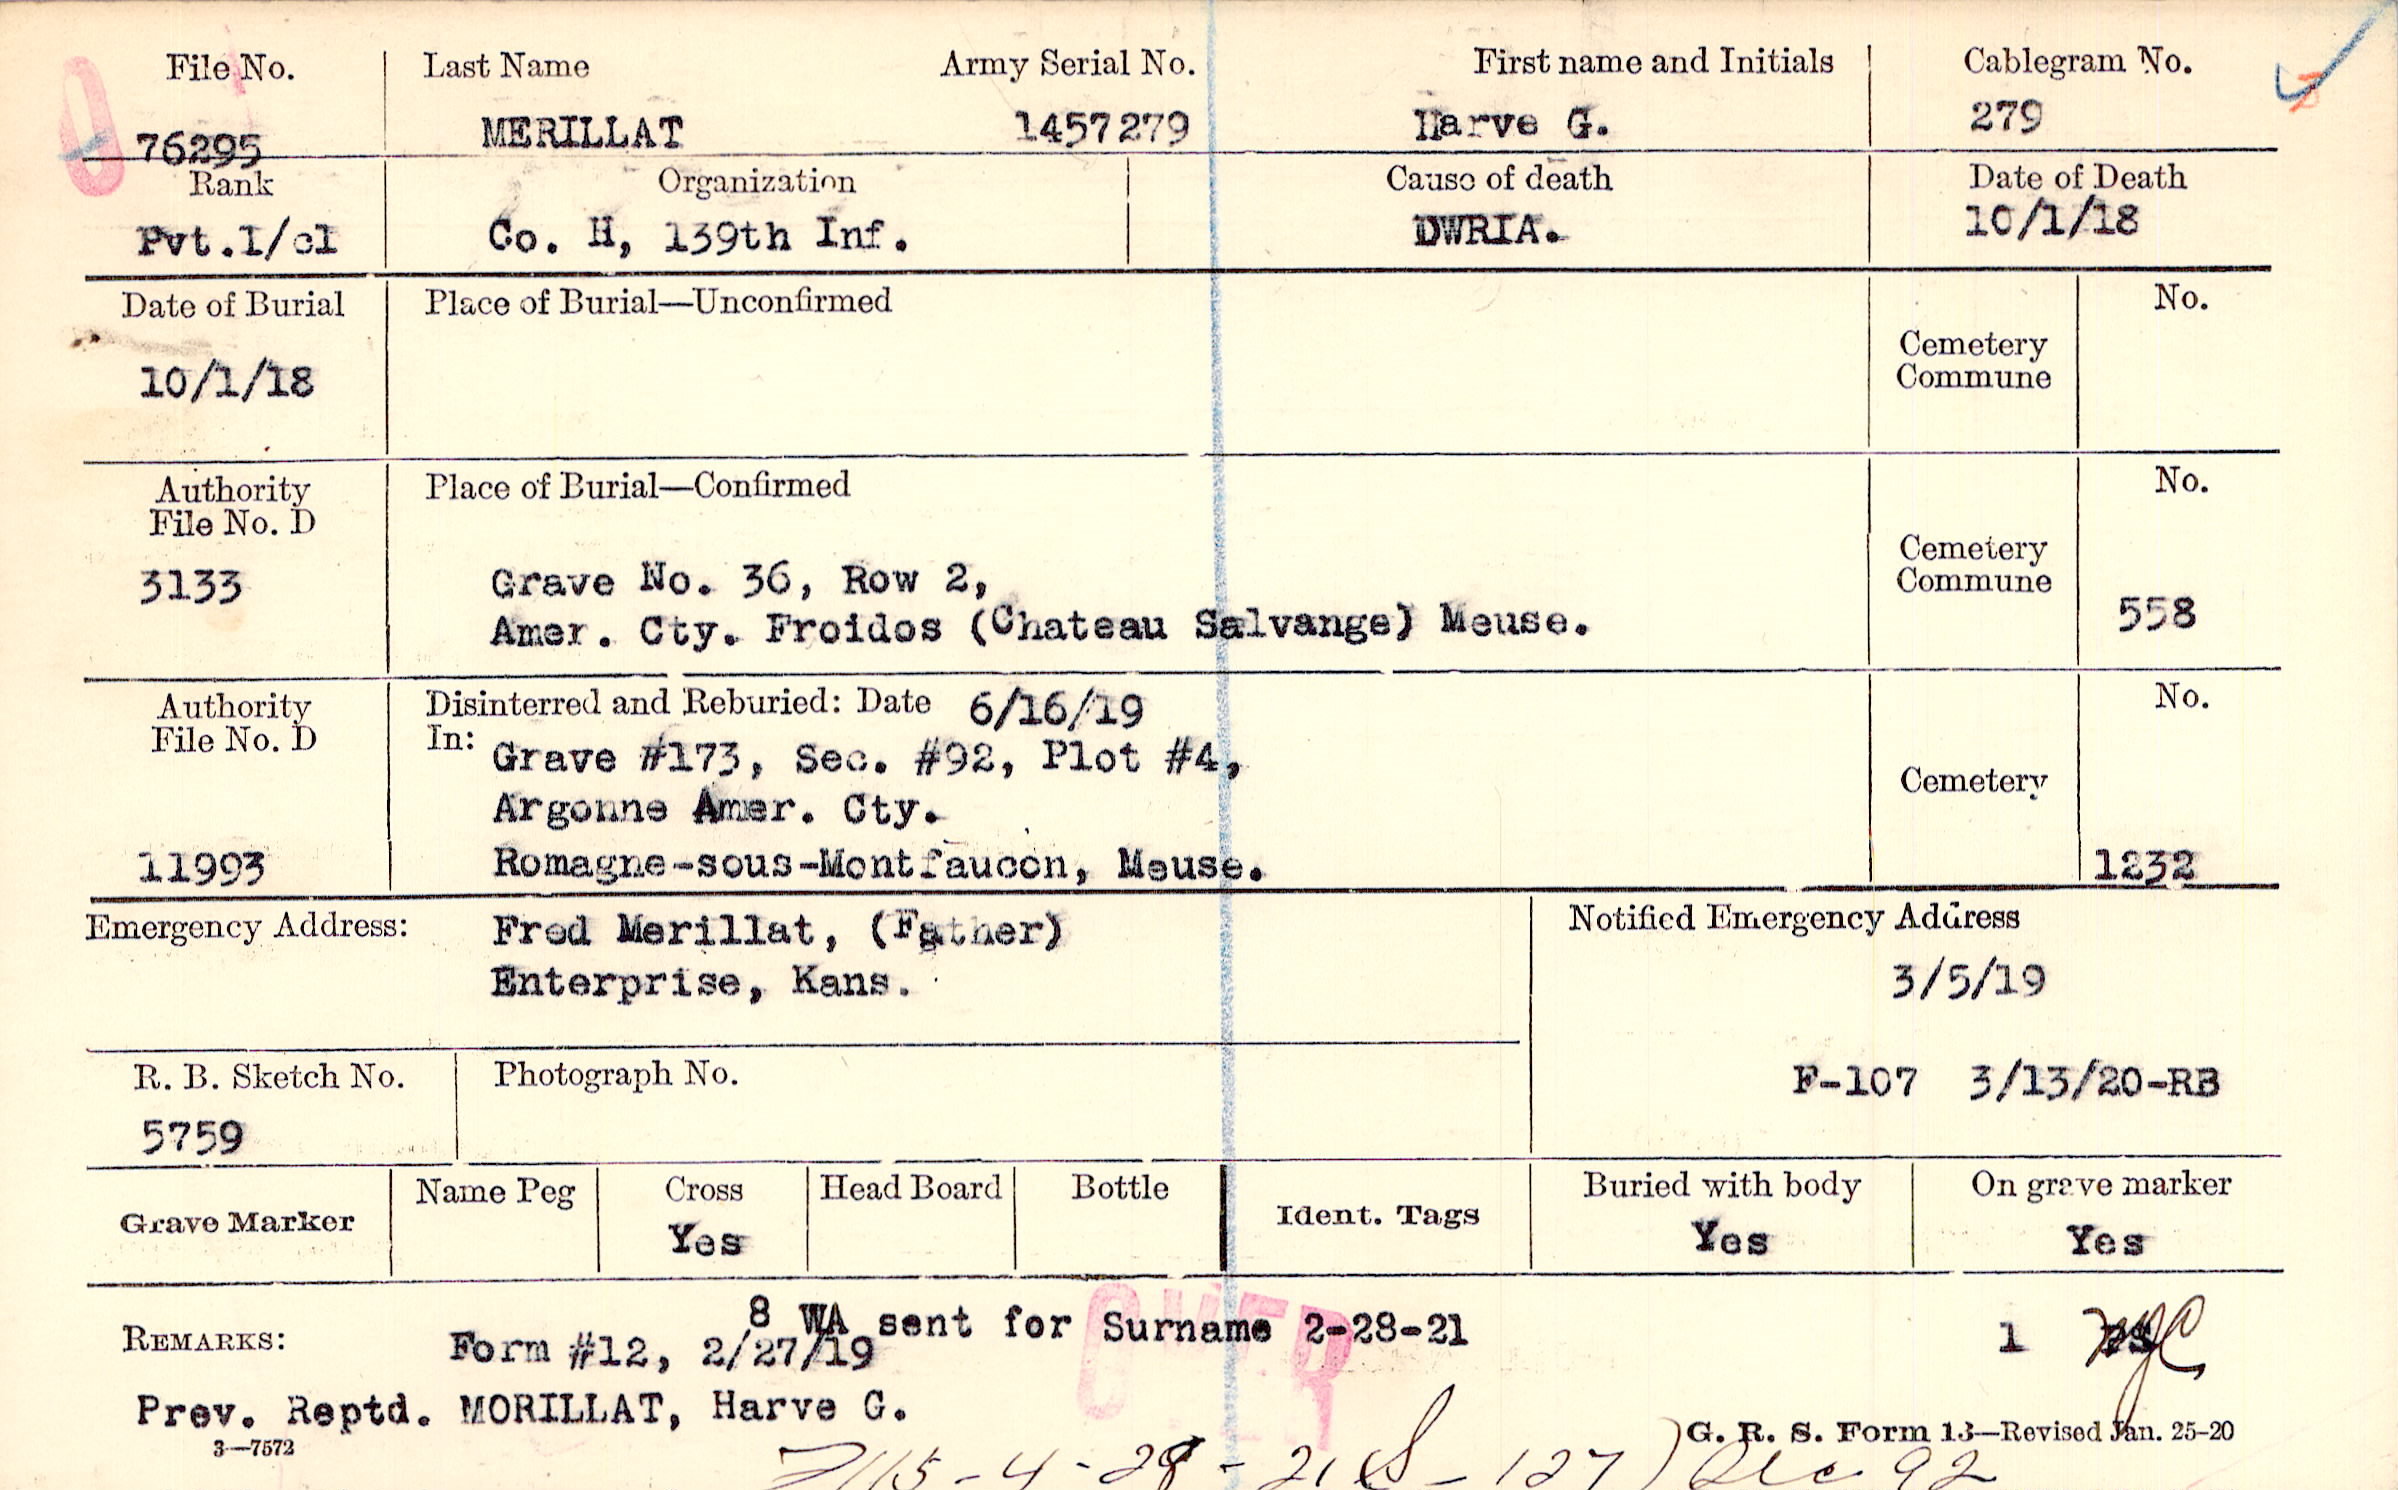 File No. Last Name Army Serial No. First name and Initials Cablegram No.
76295 MERILLAT 1457279 Harve G. 279
Rank Organization Cause of death Date of Death
Pvt.1/cl Co. H, 139th Inf. DWRIA. 10/1/18
Date of Burial Place of Burial—Unconfirmed No.
10/1/18 Cemetery
Commune
Authority Place of Burial—Confirmed No.
File No. D
3133 Grave No. 36, Row 2, Cemetery
Commune
Amer. Cty. Froidos (Chateau Salvange) Meuse. 558
Authority Disinterred and Reburied: Date 6/16/19 No.
File No. D In: Grave #173, Sec. #92, Plot #4,
Argonne Amer. Cty. Cemetery
11993 Romagne-sous-Montfaucon, Meuse. 1232
Emergency Address: Fred Merillat, (Father) Notified Emergency Address
Enterprise, Kans. 3/5/19
R. B. Sketch No. Photograph No. F-107 3/13/20-RB
5759
Grave Marker Name Peg Cross Head Board Bottle Ident. Tags Buried with body On grave marker
Yes Yes Yes
8 WA sent for Surname 2-28-21 1
REMARKS: Form #12, 2/27/19
OVER
Prev. Reptd. MORILLAT, Harve G.
3—7572 G. R. S. Form 13—Revised Jan. 25-20
Sec 92